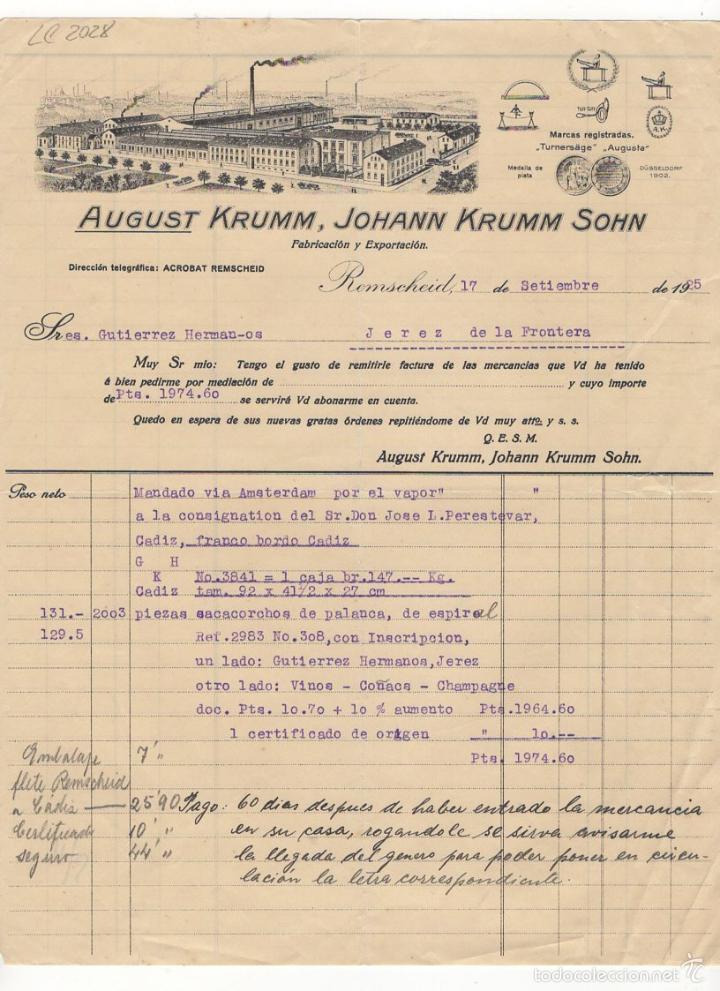 LC 2028
TURNER
A.K.
Marcas registradas.
„Turnersäge“ „Augusta“
Medalla de plata
DÜSSELDORF 1902.
AUGUST KRUMM, JOHANN KRUMM SOHN
Fabricación y Exportación.
Dirección telegráfica: ACROBAT REMSCHEID
Remscheid, 17 de Setiembre de 1925
Sres. Gutierrez Herman-os Jerez de la Frontera
Muy Sr mio: Tengo el gusto de remitirle factura de las mercancias que Vd ha tenido
á bien pedirme por mediación de y cuyo importe
de Pts. 1974.60 se servirá Vd abonarme en cuenta.
Quedo en espera de sus nuevas gratas órdenes repitiéndome de Vd muy atto. y s. s.
Q. E. S. M.
August Krumm, Johann Krumm Sohn.
Peso neto Mandado via Amsterdam por el vapor" "
a la consignation del Sr.Don Jose L.Perestevar,
Cadiz, franco bordo Cadiz
G H
K No.3841 = 1 caja br.147.-- Kg.
Cadiz tam. 92 x 41½ x 27 cm
131.- 2003 piezas sacacorchos de palanca, de espiral
129.5 Ref.2983 No.308,con Inscripcion,
un lado: Gutierrez Hermanos,Jerez
otro lado: Vinos - Coñacs - Champagne
doc. Pts. 10.70 + 10 % aumento Pts.1964.60
1 certificado de origen " 10.--
Pts. 1974.60
Embalaje 7' "
flete Remscheid
a Cádiz — 25'90 Pago: 60 dias despues de haber entrado la mercancia
Certificado 10' " en su casa, rogandole se sirva avisarme
seguro 44' " la llegada del genero para poder poner en circu-
lación la letra correspondiente.
todocoleccion.net